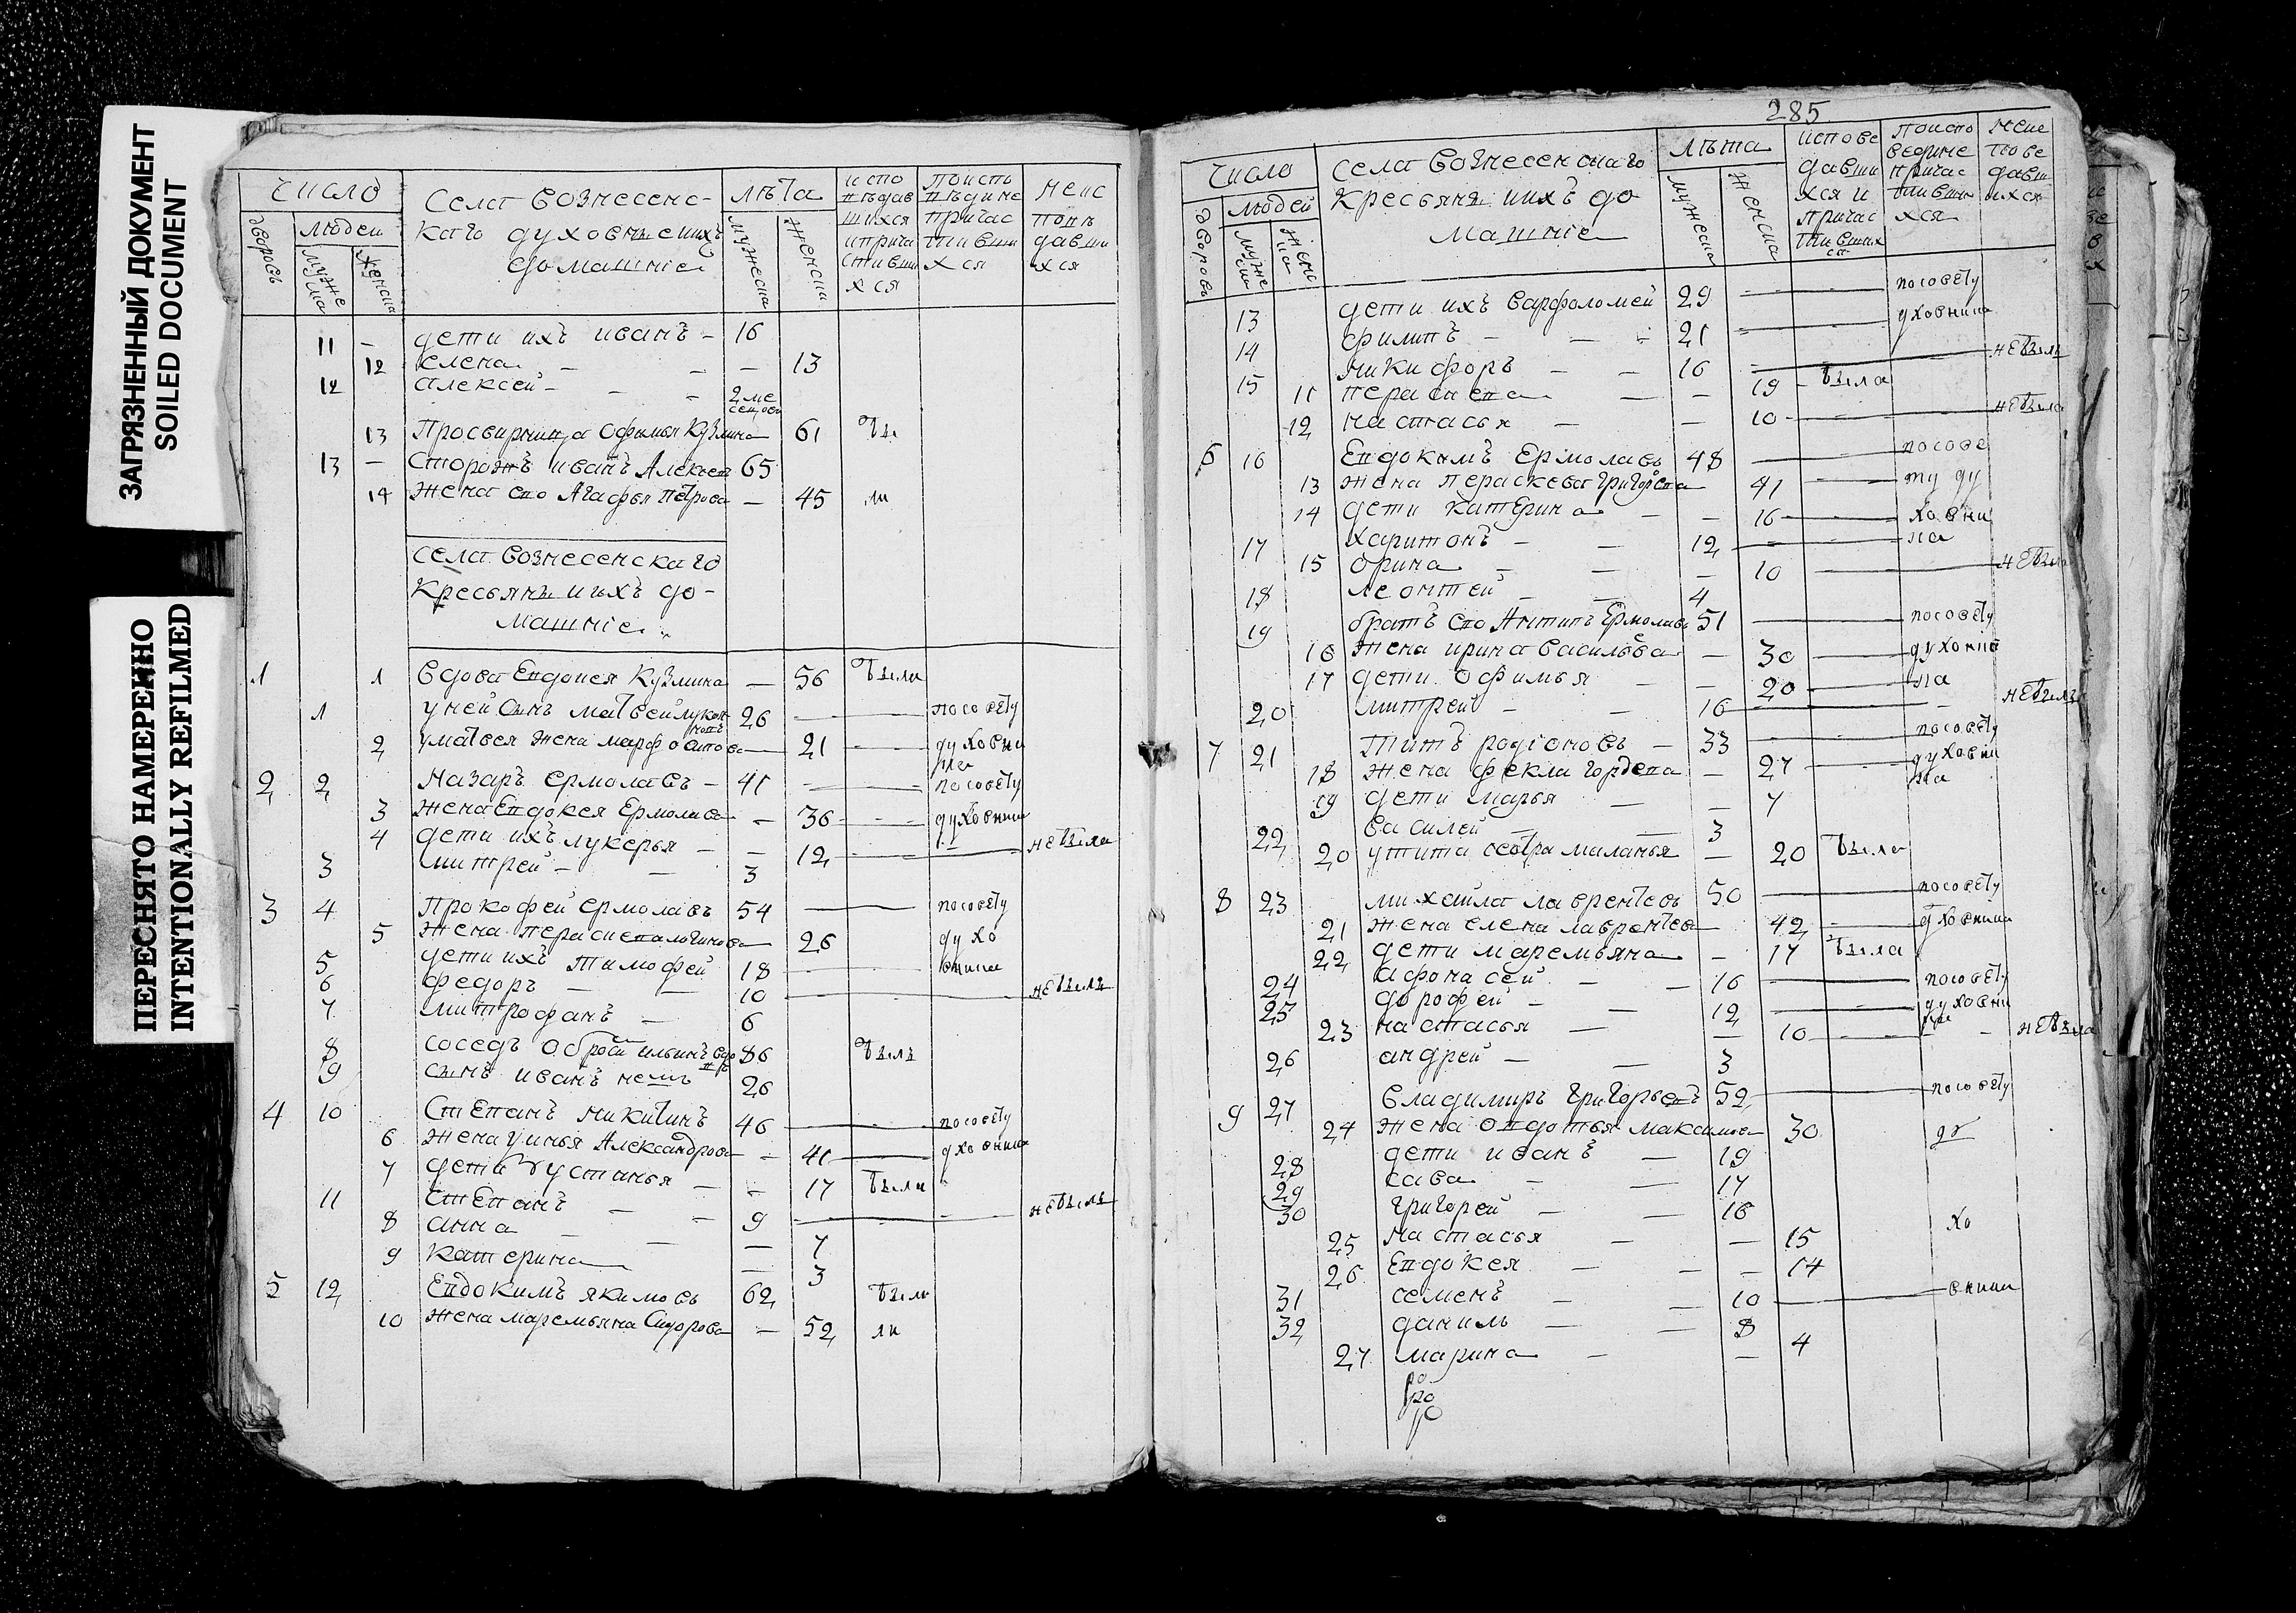 ЗАГРЯЗНЕННЫЙ ДОКУМЕНТ
SOILED DOCUMENT
ПЕРЕСНЯТО НАМЕРЕННО
INTENTIONALLY REFILMED
число
дворовъ
людей
муже ска
женска
села вознесенс-
каго духовные ихъ
домашние
лѣта
мужеска
женска
испо
вѣдав
шихся
и прича
стивши
хся
поисп
вѣдике
причас
тивши
хся
неис
повѣ
давши
хся
11 – дети ихъ иванъ – 16
12 елена – – – 13
12 алексей – – 2 ме
сецовъ
13 Просвирница офимья Кузмина 61 бы
13 – Сторожъ иванъ Алексеев 65
14 жена ево Агафья Петрова – 45 ли
села вознесенскаго
кресьяня ихъ до-
машние
1 1 вдова Евдокея Кузмина – 56 были
1 у ней сынъ матвей лукоя 26 посовету
2 у матвея жена марфа 21 духовни
ка
2 2 Назаръ ермолаевъ – 41 посовету
3 жена Евдокея Ермолаева – 36 духовника
4 дети ихъ лукерья – – 12 небыла
3 митрей – – 3
3 4 Прокофей ермолаевъ 54 посовету
5 жена 26 духо
5 дети ихъ тимофей 18 вника
6 федоръ – – 10 небылъ
7 митрофанъ – 6
8 соседъ ильинъ 86 былъ
9 сынъ иванъ немъ 26
4 10 Степанъ микитинъ 46 посовету
6 жена улияья Александрова – 41 духовника
7 дети устинья – – 17 была
11 степанъ – – 9 небылъ
8 анна – – – 7
9 катерина – 3
5 12 Евдокимъ якимовъ 62 бы
10 жена маремьяна Сидорова – 52 ли
285
число
дворовъ
людей
муже ска
женс ка
села вознесенскаго
кресьяня ихъ до
машние
лѣта
мужеска
женска
испове
давши
хся и
причас
тивших
ся
поиспо
ведике
причас
тивши
хся
неис
пове
давш
ихся
13 дети ихъ варфоломей 29 посовету
14 филипъ – – 21 духовника
15 микифоръ – – 16 небылъ
11 – – 19 – была
12 настасья – – 10 небыла
6 16 Евдокимъ Ермолаевъ 48 посове
13 жена пераскева григорева 41 ту ду
14 дети катерина – – 16 ховни
17 харитонъ – – 12 ка
15 орина – – – 10 небыла
18 леонтей – – 4
19 братъ ево Антипъ Ермолаевъ 51 посовету
16 жена ирина васильева – 30 духовни
17 дети офимья – – 20 ка
20 митрей – – 16 небылъ
7 21 Титъ родионовъ – 33 посовету
18 жена фекла гордева – 27 духовни
ка
19 дети марья – – 7
22 василей – – 3
20 у тита сестра маланья – 20 была
8 23 михайла лаврентевъ 50 посовету
21 жена елена лаврентева 42 духовника
22 дети маремьяна – 17 была
24 афонасей – – 16 посовету
25 дорофей – – 12 духовни
ка
23 настасья – – 10 небыла
26 андрей – – 3
9 27 владимиръ григорьевъ 52 посовету
24 жена овдотья максимова 30 ду
28 дети иванъ – 19
29 сава – – 17
30 григорей – – 16
25 настасья – – 15 хо
26 Евдокея – – – 14
31 семенъ – – 10 вника
32 данилъ – – 8
27 марина – – 4